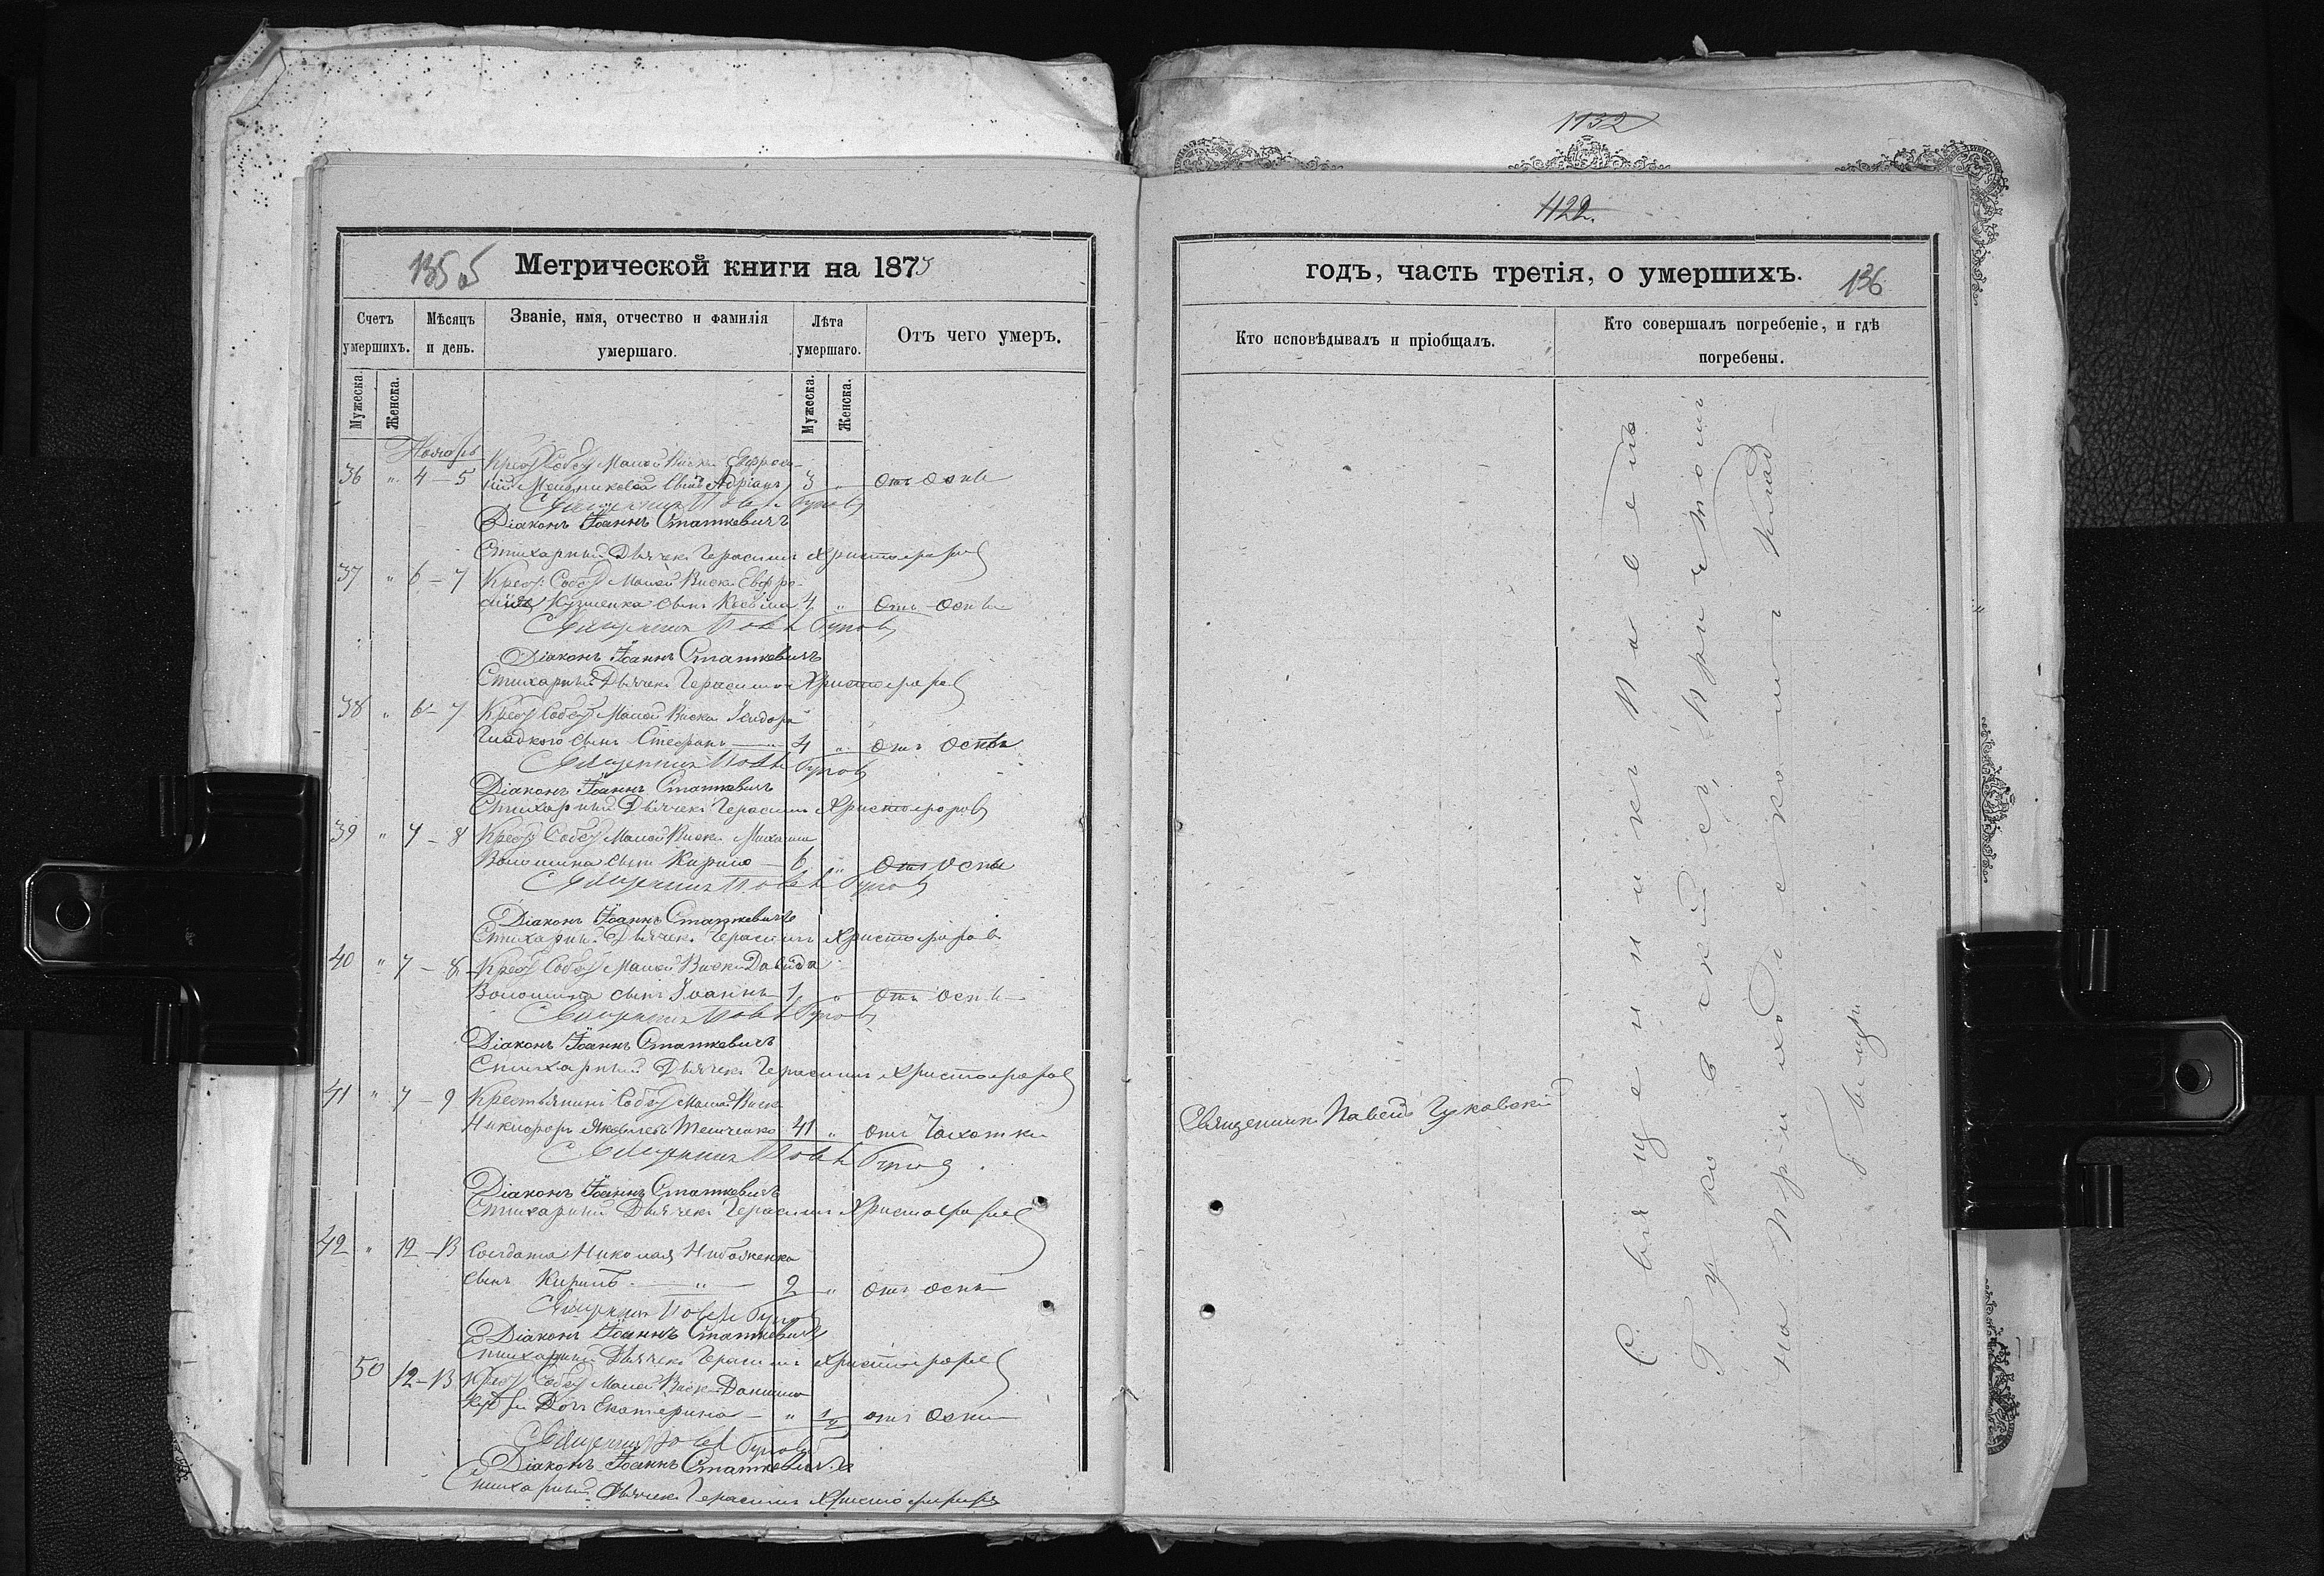 135 об
Метрической книги на 1873
Счетъ умершихъ.
Мѣсяцъ и день.
Званіе, имя, отчество и фамилія умершаго.
Лѣта умершаго.
Отъ чего умеръ.
Мужеска.
Женска.
Мужеска.
Женска.
Ноябрь
Крест Собст Малой Виски Евфроси-
36 " 4 – 5 сынъ Адріанъ 3 " отъ оспы
Священникъ Павелъ
Діаконъ Іоаннъ Статкевичъ
Стихарный Дьячекъ Герасимъ Христофоровъ
37 " 6 – 7 Крест: Собст Малой Виски Евфро-
сынъ Косьма 4 " отъ оспы
Священникъ Павелъ
Діаконъ Іоаннъ Статкевичъ
Стихарный Дьячекъ Герасимъ Христофоровъ
38 " 6 – 7 Крест Собст Малой Виски Ісидора
Гладкого сынъ Стефанъ — 4 " отъ оспы
Священникъ Павелъ
Діаконъ Іоаннъ Статкевичъ
Стихарный Дьячекъ Герасимъ Христофоровъ
39 " 7 – 8 Крест Собст Малой Виски Михаила
Волошина сынъ Кирилъ — 6 " отъ оспы
Священникъ Павелъ
Діаконъ Іоаннъ Статкевичъ
Стихарный Дьячекъ Герасимъ Христофоровъ
40 " 7 – 8 Крест Собст Малой Виски Давида
Волошина сынъ Іоаннъ 1 " отъ оспы
Священникъ Павелъ
Діаконъ Іоаннъ Статкевичъ
Стихарный Дьячекъ Герасимъ Христофоровъ
41 " 7 – 9 Крестьянинъ Собст Малой Виски
Никифоръ Яковлевъ 41 " отъ Чахотки
Священникъ Павелъ
Діаконъ Іоаннъ Статкевичъ
Стихарный Дьячекъ Герасимъ Христофоровъ
42 " 12 – 13 Солдата Николая
сынъ Кирилъ — " — 2 " отъ оспы
Священникъ Павелъ
Діаконъ Іоаннъ Статкевичъ
Стихарный Дьячекъ Герасимъ Христофоровъ
50 12 – 13 Крест Собст Малой Виски Даниила
Дочь Екатерина — " 1/2 отъ оспы
Священникъ Павелъ
Діаконъ Іоаннъ Статкевичъ
Стихарный Дьячекъ Герасимъ Христофоровъ
1132
1122.
годъ, часть третія, о умершихъ. 136
Кто исповѣдывалъ и пріобщалъ.
Кто совершалъ погребеніе, и гдѣ погребены.
Священникъ Павелъ Гуковскій
Священникъ Павелъ
Гуковскій съ Причтомъ
на Приходскомъ клад-
бищѣ